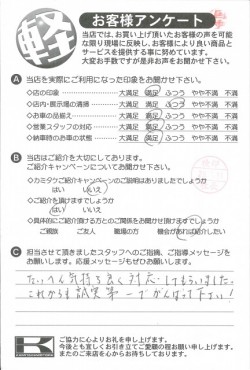 軽
お客様アンケート
当店では、お買い上げ頂いたお客様の声を可能
な限り現場に反映し、お客様により良い商品と
サービスを提供する事に努めています。
大変お手数ですが是非お声をお聞かせ下さい。
A 当店を実際にご利用になった印象をお聞かせ下さい。
◇店の印象 大満足 満足 ふつう やや不満 不満
◇店内・展示場の清掃 大満足 満足 ふつう やや不満 不満
◇お車の品揃え 大満足 満足 ふつう やや不満 不満
◇営業スタッフの対応 大満足 満足 ふつう やや不満 不満
◇納車時のお車の状態 大満足 満足 ふつう やや不満 不満
B 当店はご紹介を大切にしております。
ご紹介キャンペーンについてお聞かせ下さい。
◇カミタケご紹介キャンペーンのご説明はありましたでしょうか
はい いいえ
◇ご紹介を頂けますでしょうか
はい いいえ
◇具体的にご紹介頂ける方とのご関係をお聞かせ頂けますでしょうか
ご親族 ご友人 職場の方 機会があれば紹介したい
C 担当させて頂きましたスタッフへのご指摘、ご指導メッセージを
お願いします。応援メッセージもぜひお願いします。
たいへん気持ち良く対応してもらいました。
これからも誠実第一でがんばって下さい!
K
ご協力に心よりお礼を申し上げます。
今後とも宜しくお引き立てご愛顧の程お願い申し上げます。
またのご来店を心からお待ちしております。